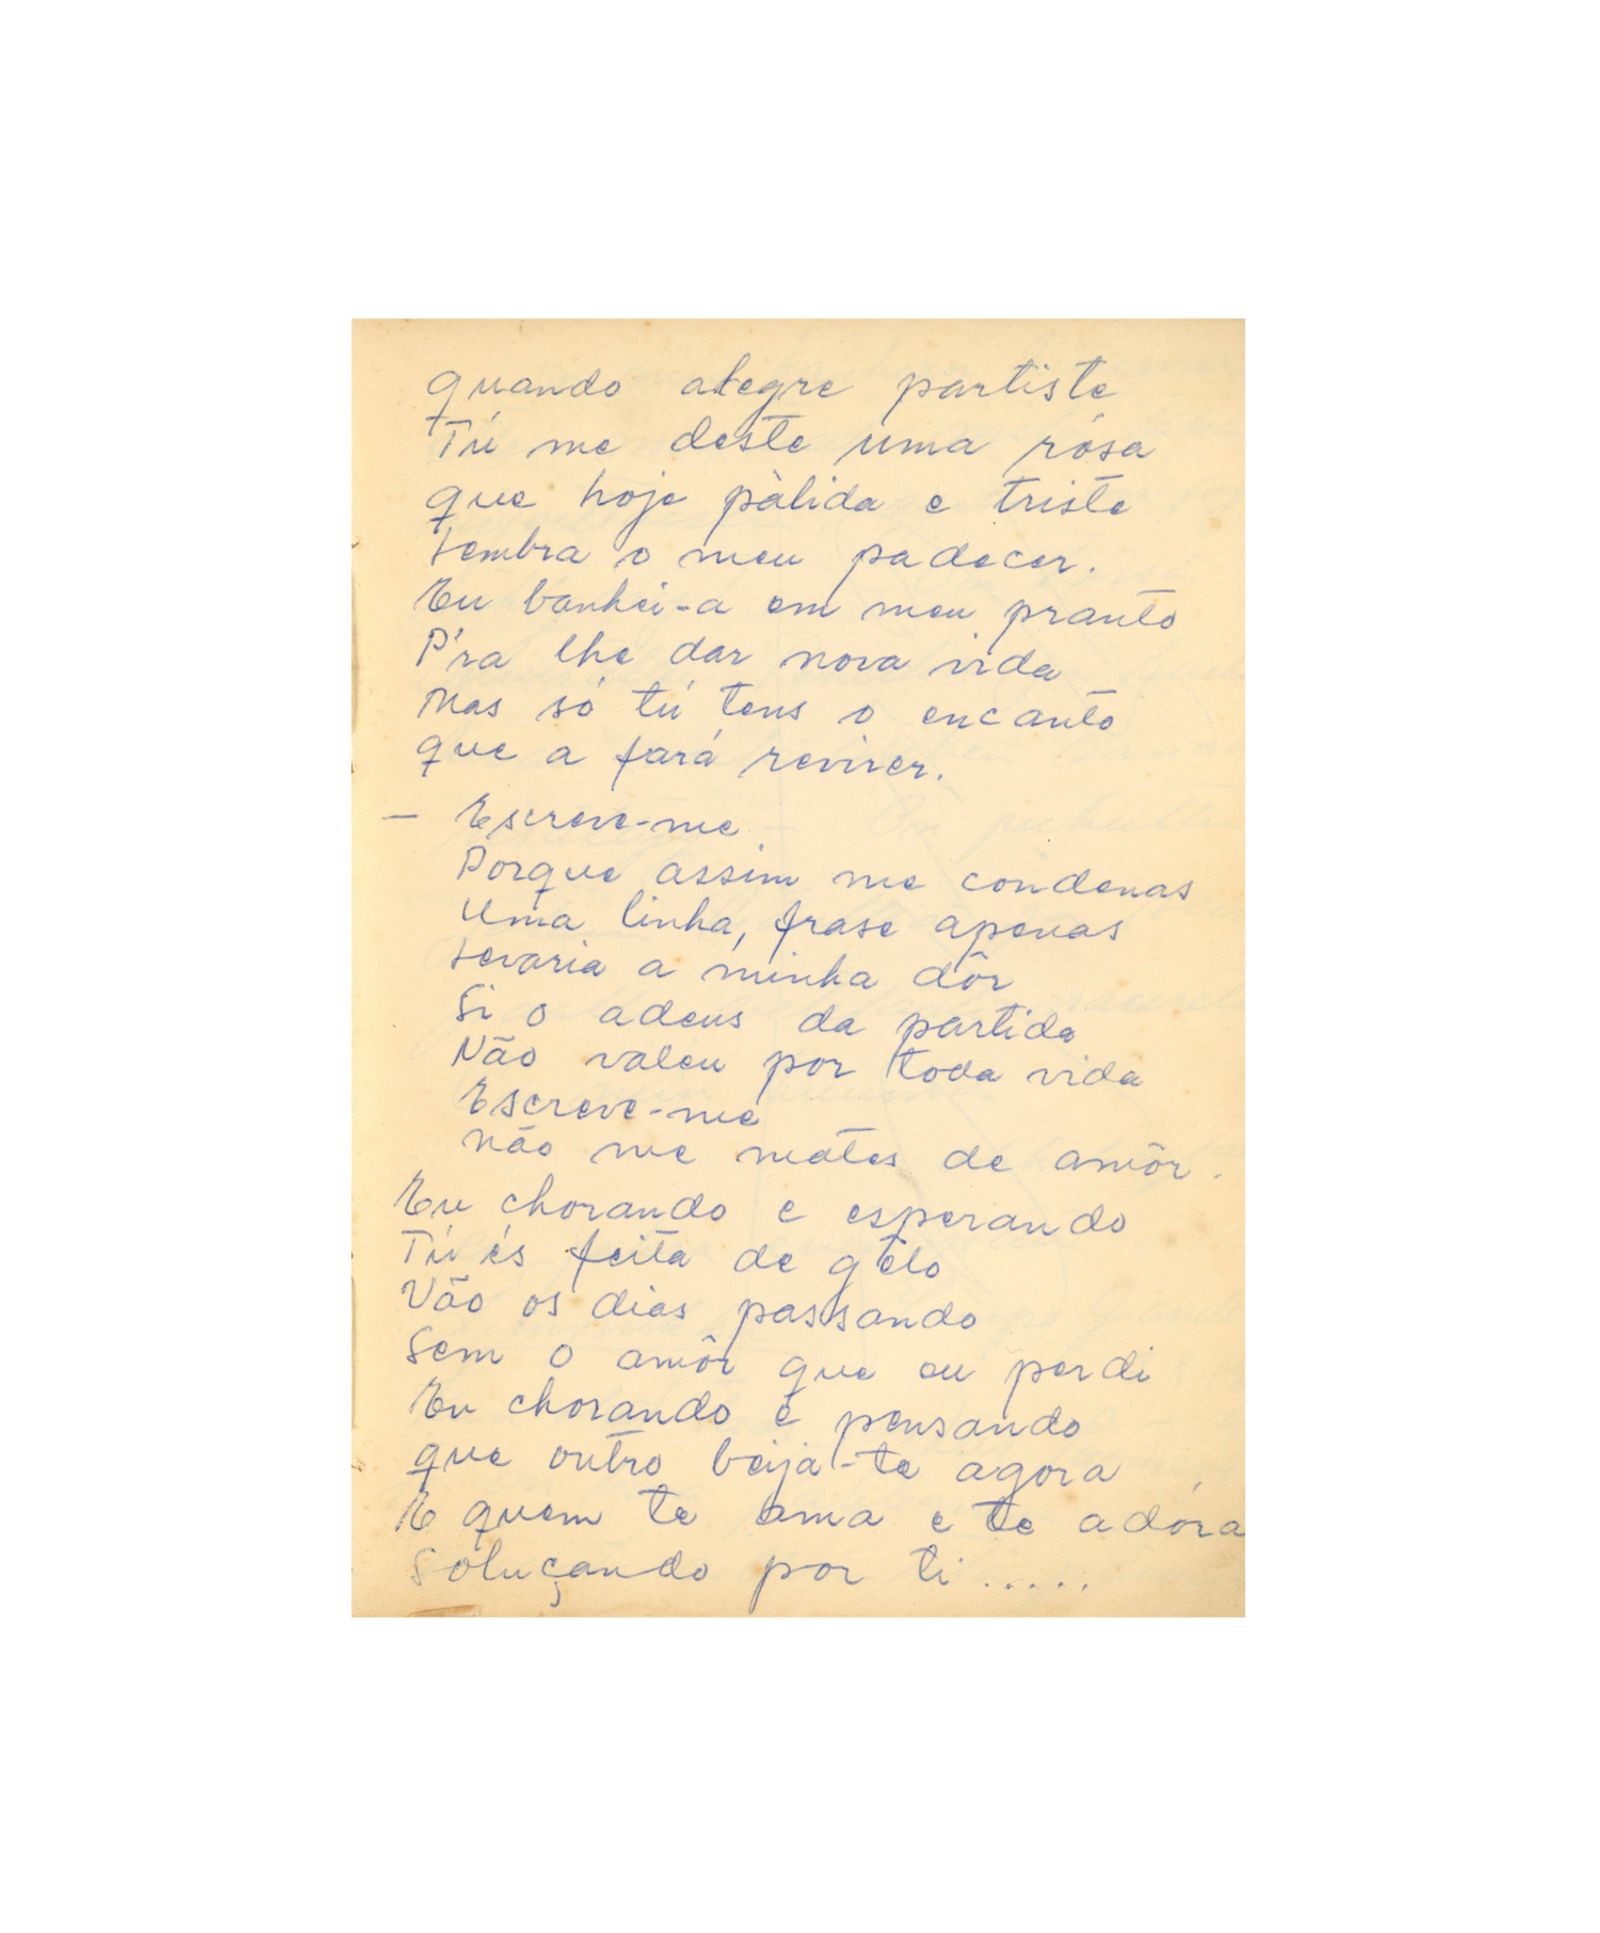 quando alegre partiste
Tú me deste uma rósa
que hoje pàlida e triste
Lembra o meu padecer.
Eu banhei-a em meu pranto
P'ra lhe dar nova vida
Mas só tú tens o encanto
que a fará reviver.
- Escreve-me
Porque assim me condenas
Uma linha, frase apenas
Levaria a minha dôr
Si o adeus da partida
Não valeu por toda vida
Escreve-me
não me mates de amôr.
Eu chorando e esperando
Tú és feita de gêlo
Vão os dias passando
Sem o amôr que eu perdi
Eu chorando e pensando
que outro beija-te agora
E quem te ama e te adóra
Soluçando por ti .....